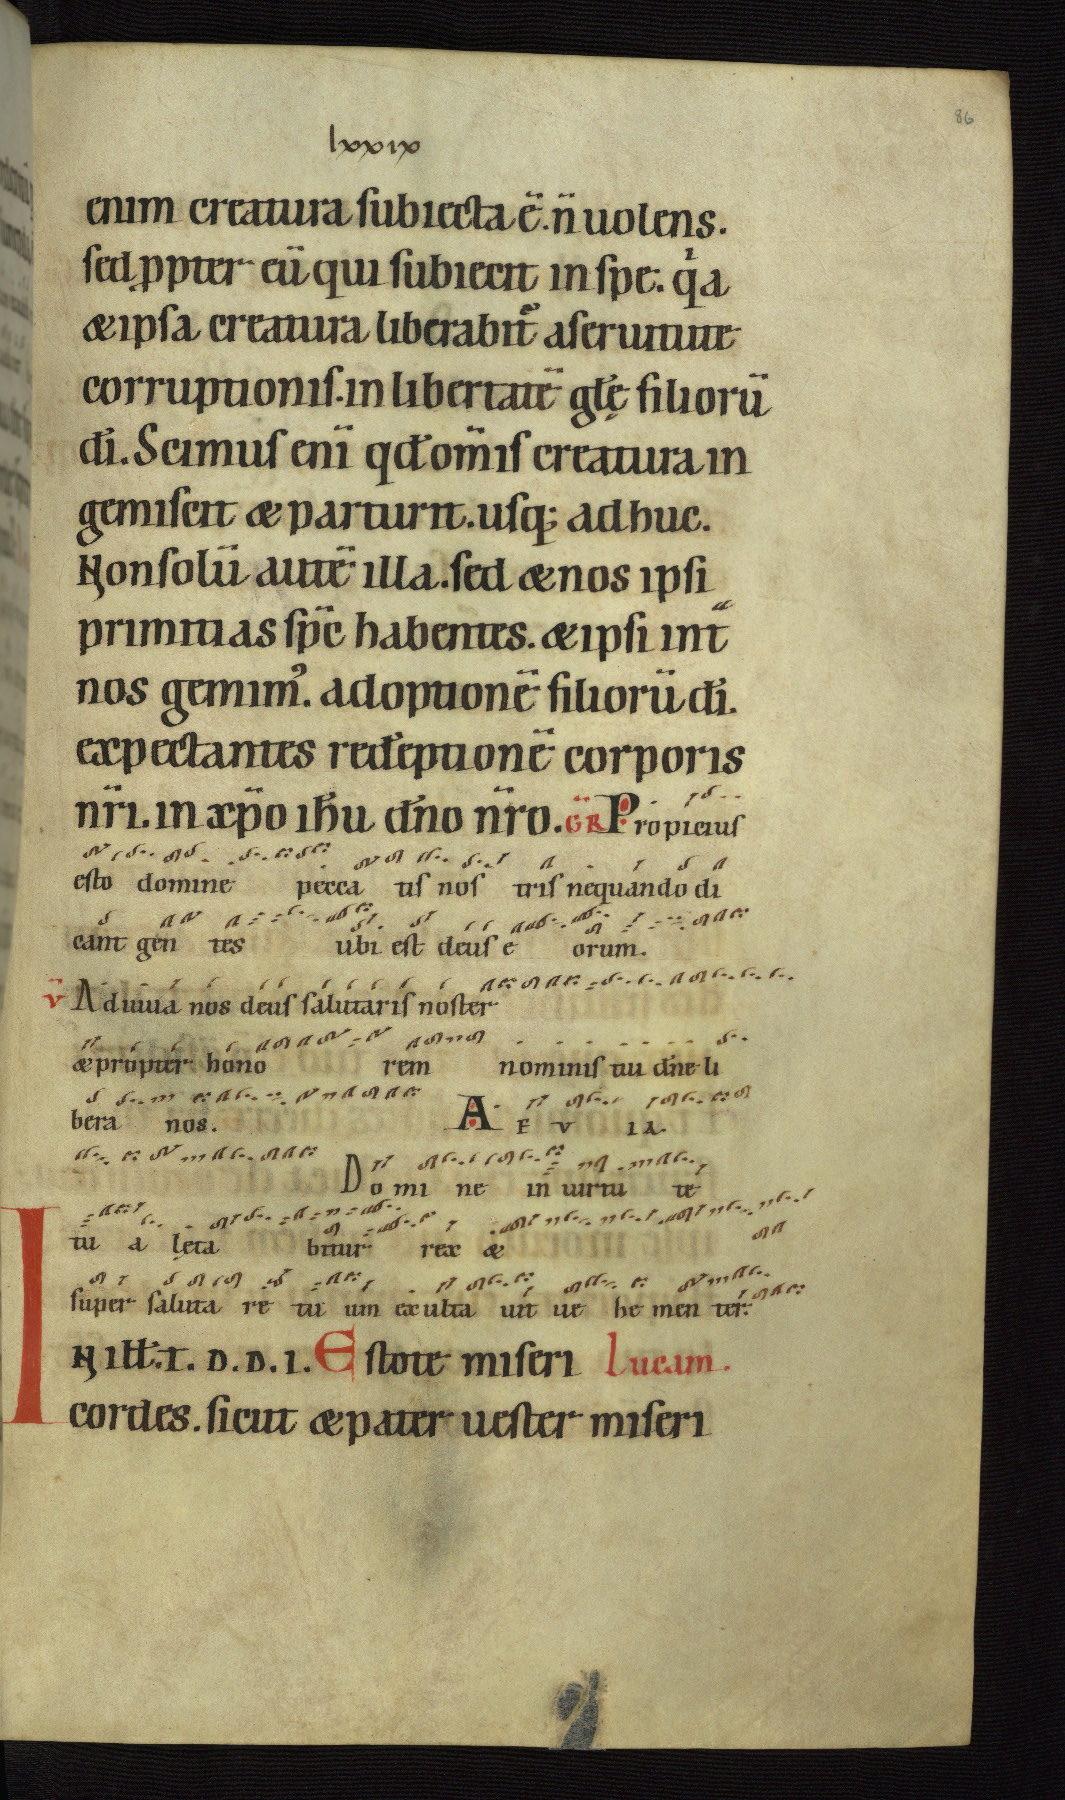 86
lxxix
enim creatura subiecta ē. n̄ uolens.
sed ꝓpter eū qui subiecit in spe. qͥa
& ipsa creatura liberabit᷑ a seruitute
corruptionis. in libertatē głę filiorū
đi. Scimus eni̅ qđ om̄is creatura in
gemiscit & parturit. usq; adhuc.
Non solū autē illa. sed & nos ipsi
primitias sp̄c habentes. & ipsi int͛
nos gemimꝰ. adoptionē filiorū đi.
expectantes redēptionē corporis
nr̄i. in xp̄o ihu dn̄o nr̄o. GR Propicius
esto domine pecca tis nos tris nequando di
cant gen tes ubi est deus e orum.
v̄ Adiuua nos deus salutaris noster
& propter hono rem nominis tui dn̄e li
bera nos. A E V I A.
Do mi ne in uirtu te
tu a lęta bitur rex &
super saluta re tu um exulta uit ue he men ter.
IN ILŁ. T. D. D. I. Estote miseri Lucam.
cordes. sicut & pater uester miseri